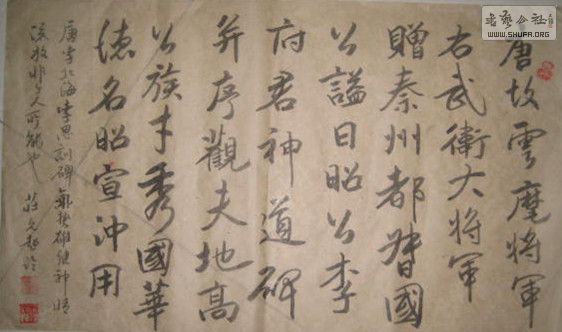 書藝公社
WWW.SHUFA.ORG
唐故雲麾將軍
右武衛大將軍
贈秦州都督國
公謚曰昭公李
府君神道碑
并序觀夫地高
公族才秀國華
德名昭宣沖用
唐李北海李思訓碑氣勢雄健神情
流放非人所能也